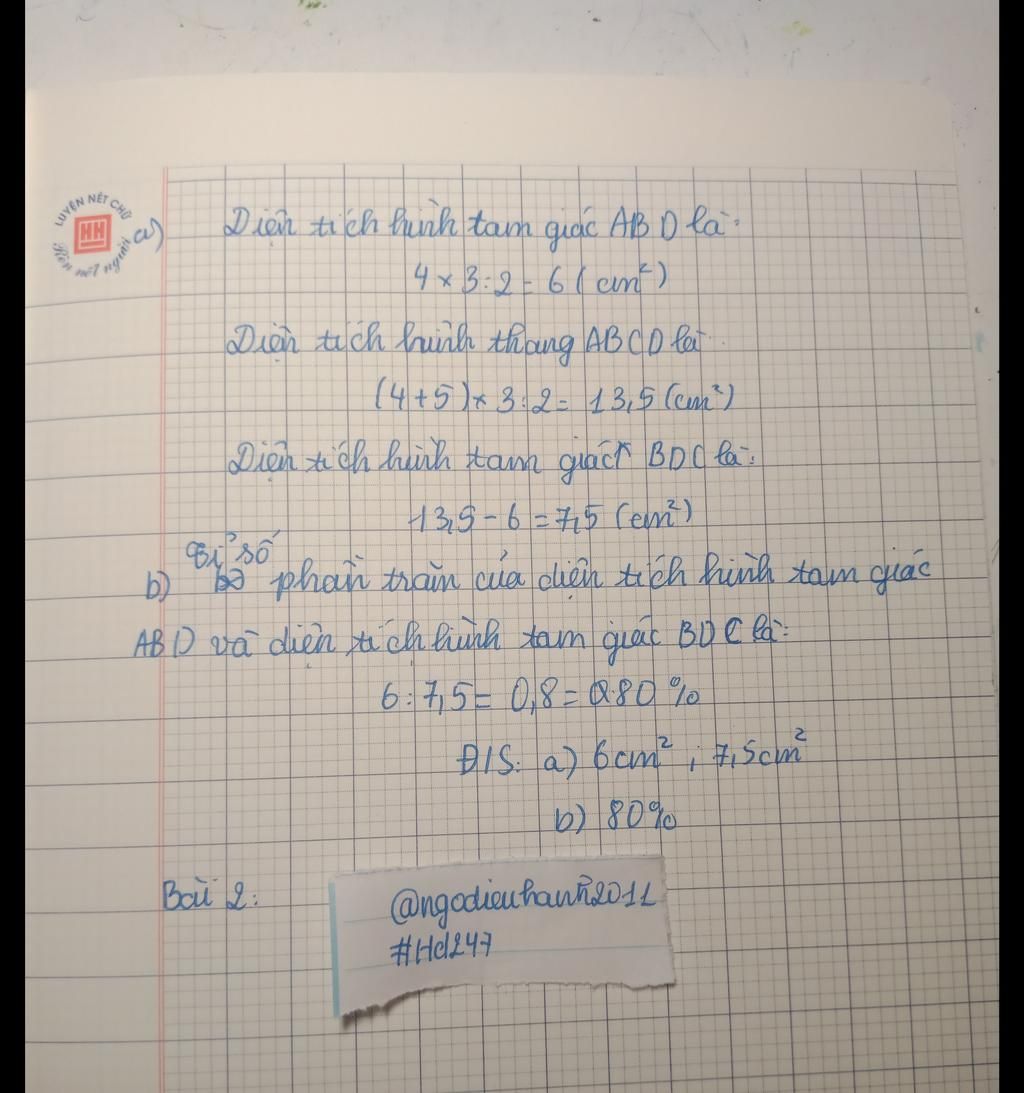 LUYỆN NÉT CHỮ
HH
Rèn nết người
a)
Diện tích hình tam giác ABD là:
4 × 3 : 2 = 6 ( cm²)
Diện tích hình thang ABCD là
(4 + 5) × 3 : 2 = 13,5 (cm²)
Diện tích hình tam giác BDC là:
13,5 - 6 = 7,5 (cm²)
Tỉ số
b) phần trăn của diện tích hình tam giác
ABD và diện tích hình tam giác BDC là:
6 : 7,5 = 0,8 = 80 %
Đ/S: a) 6 cm² ; 7,5cm²
b) 80%
Bài 2:
@ngodieuhanh2011
#Hd247